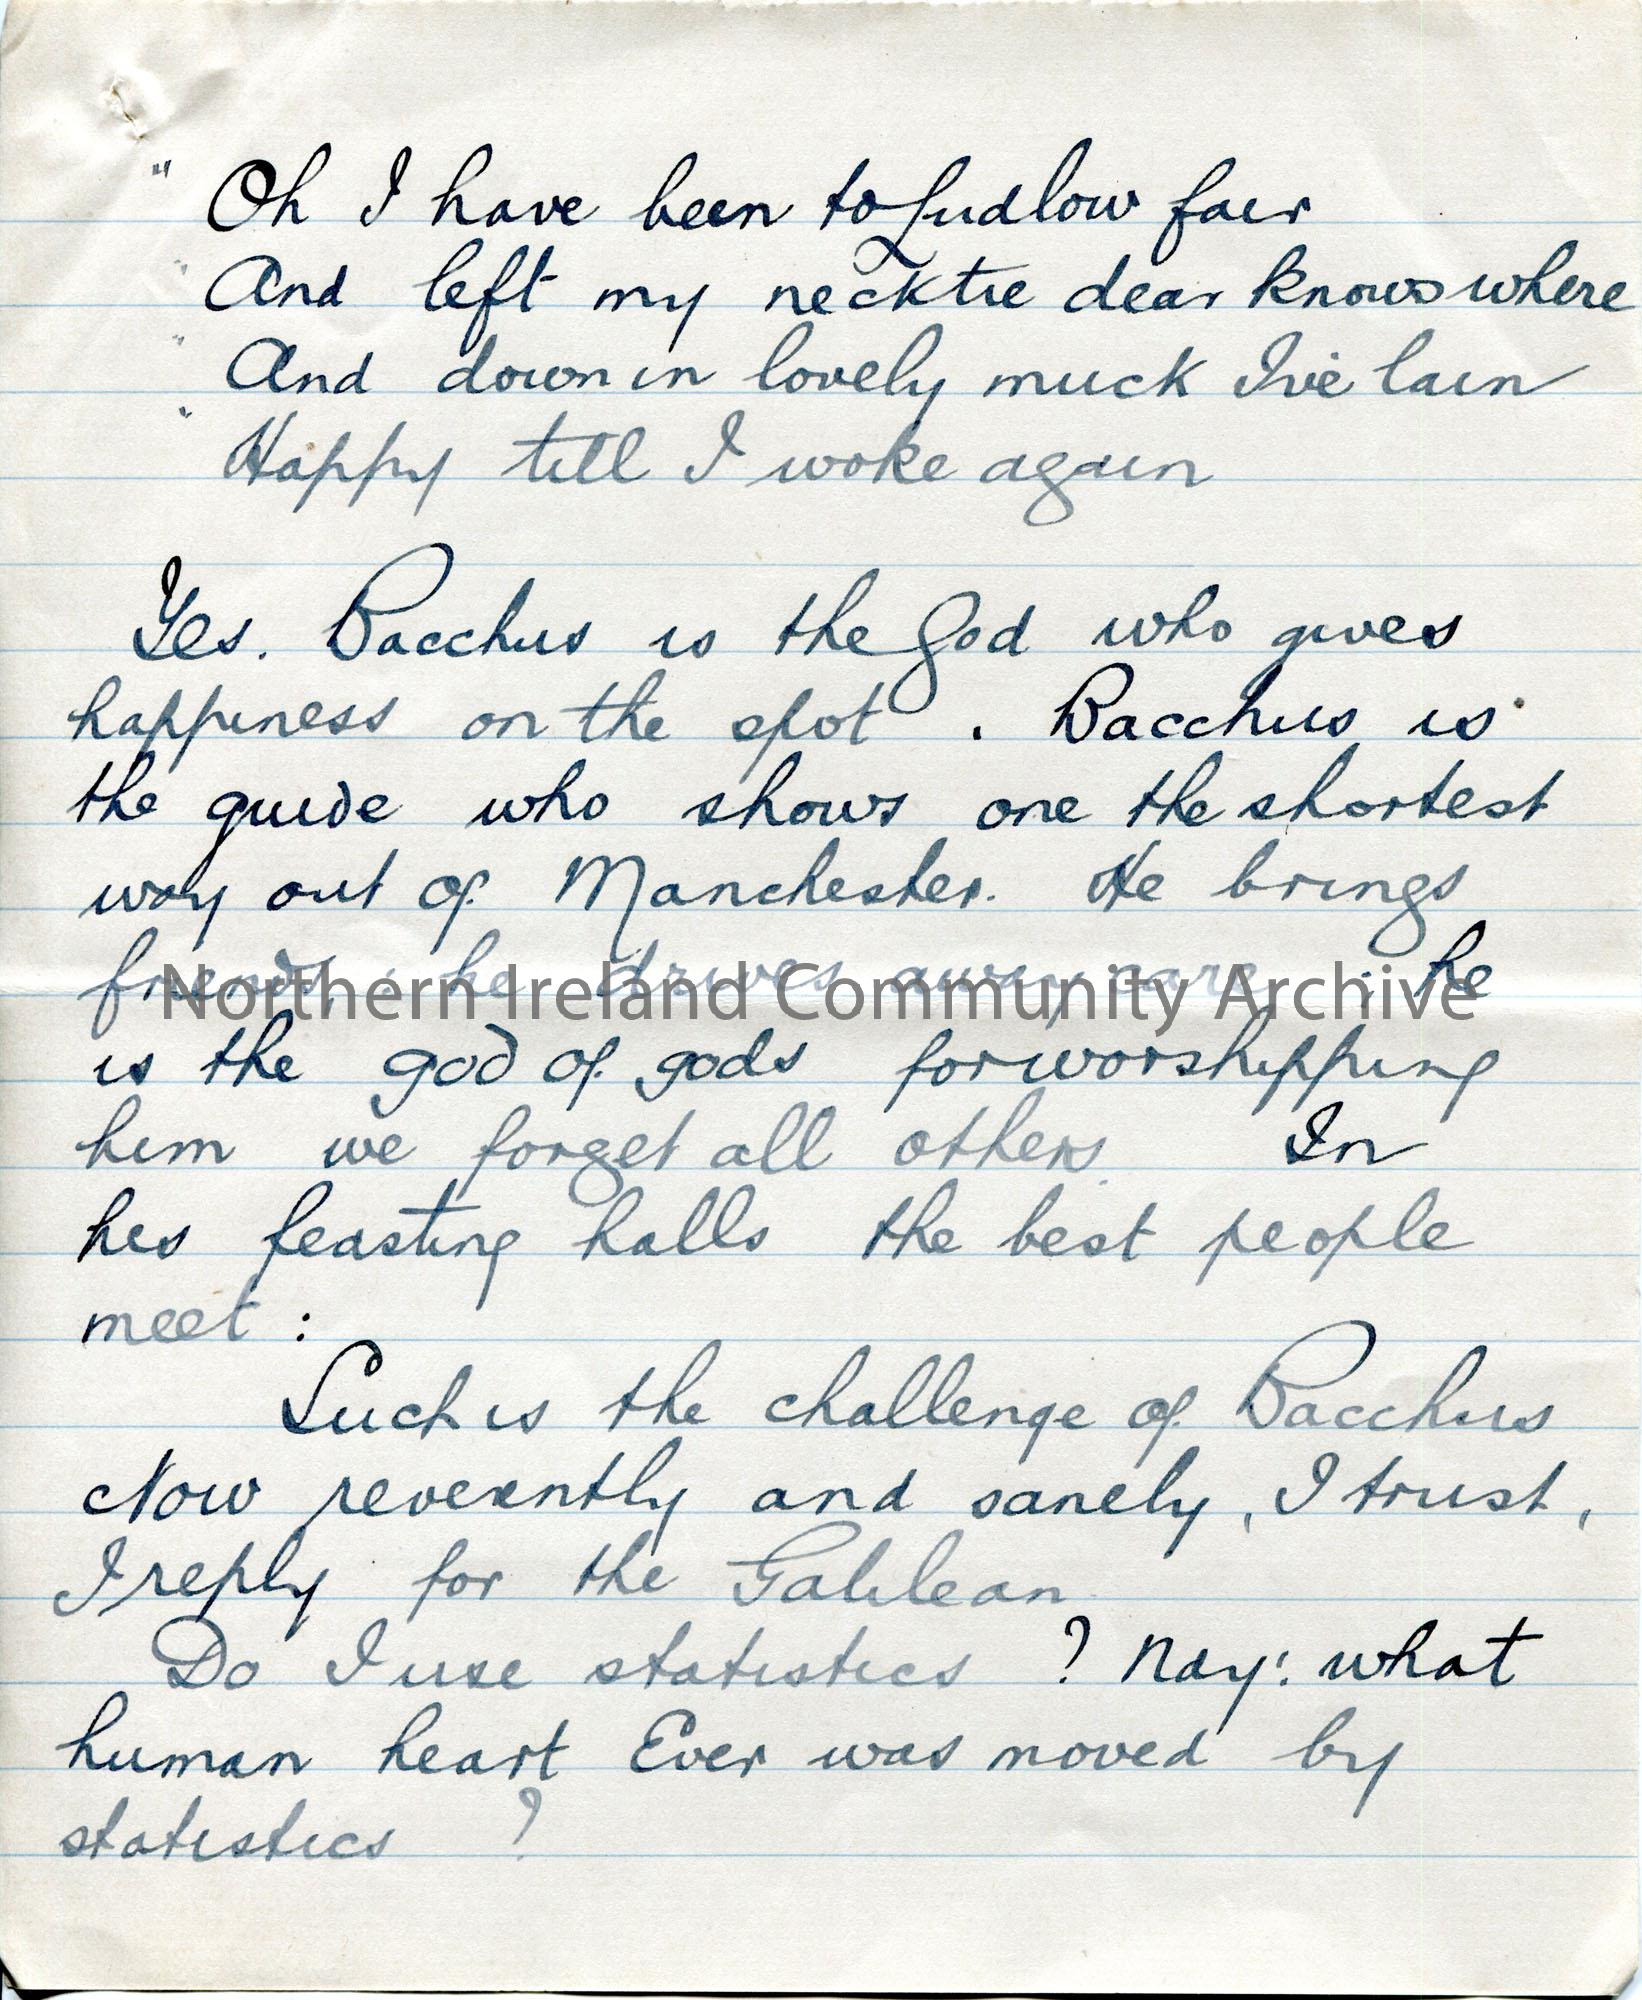 " Oh I have been to Ludlow fair
" And left my necktie dear knows where
" And down in lovely muck I've lain
" Happy till I woke again
Yes. Bacchus is the God who gives
happiness on the spot . Bacchus is
the guide who shows one the shortest
way out of Manchester. He brings
friends, he drives away care ; he
is the god of gods for worshipping
him we forget all others. In
his feasting halls the best people
meet :
Such is the challenge of Bacchus
Now reverently and sanely, I trust,
I reply for the Galilean
Do I use statistics ? Nay: what
human heart Ever was moved by
statistics ?
Northern Ireland Community Archive